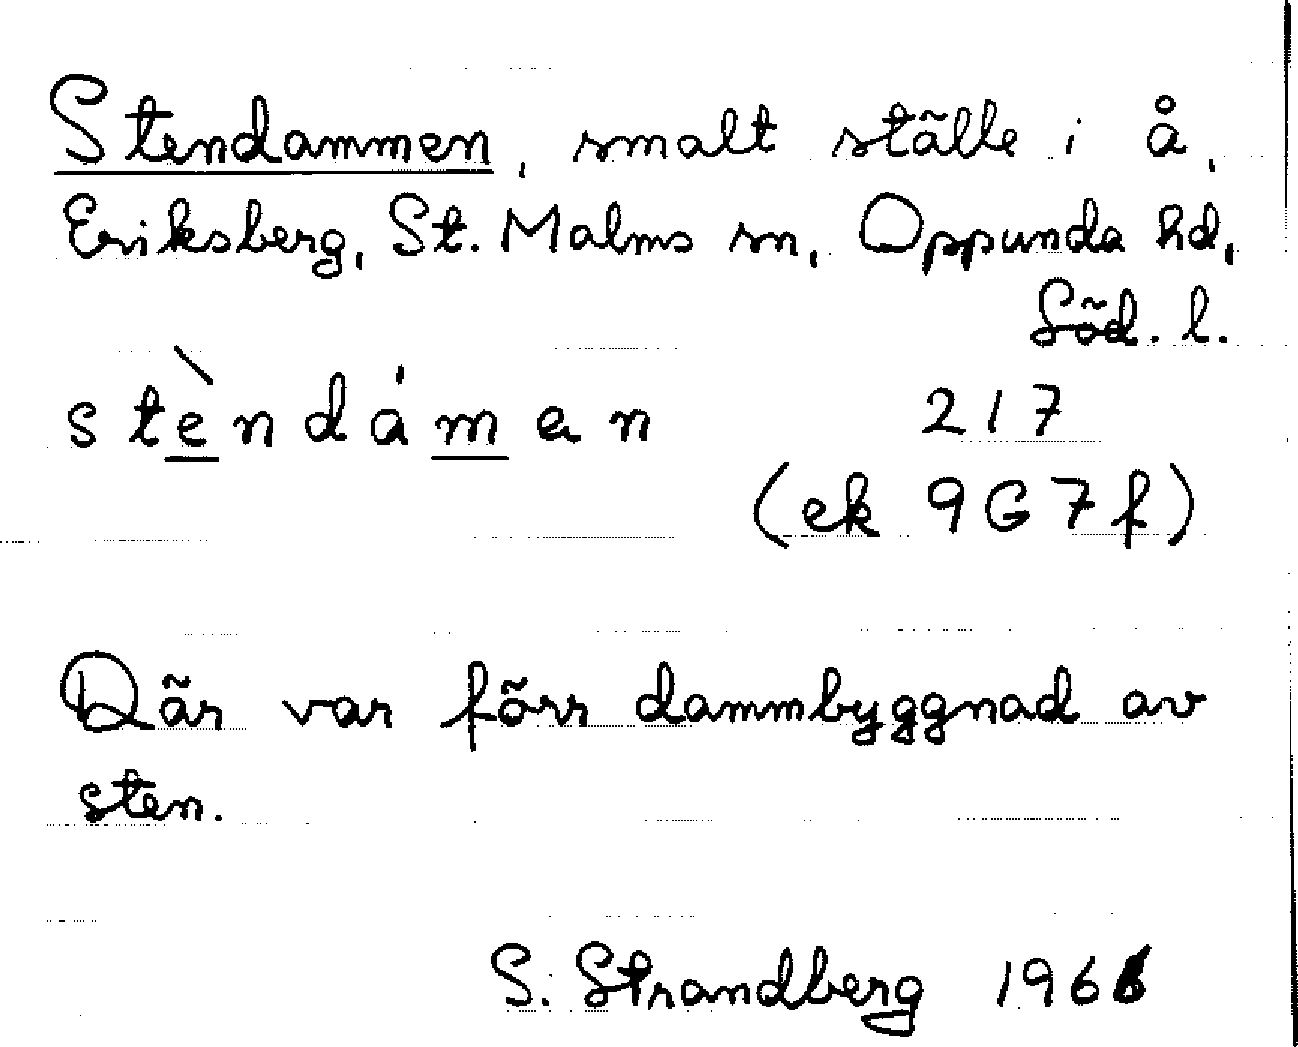 Stendammen, smalt ställe i å,
Eriksberg, St. Malms sn, Oppunda hd,
Söd. l.
stèndáman 217
(ek 9G7f)
Där var förr dammbyggnad av
sten.
S. Strandberg 1966